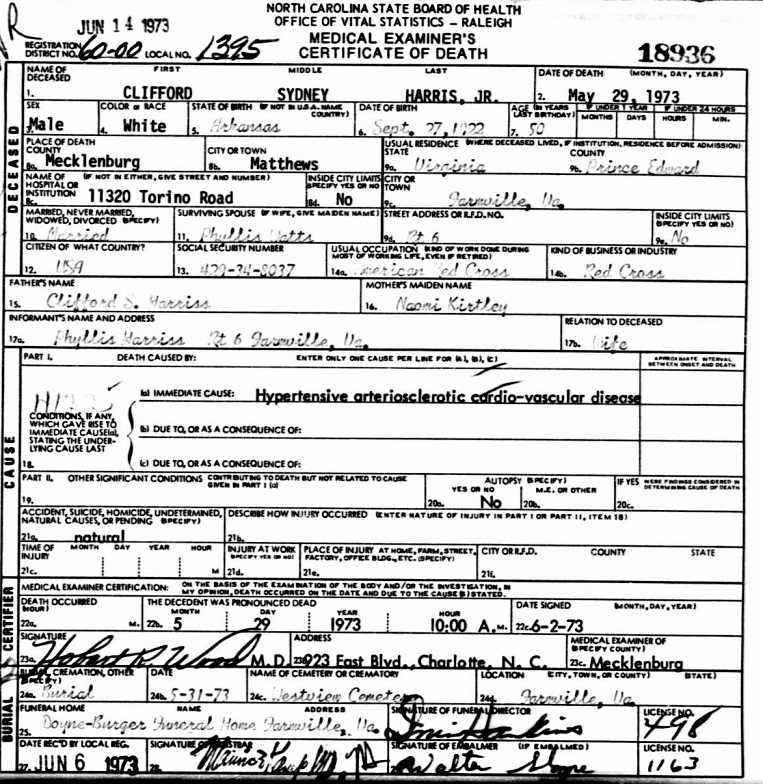 NORTH CAROLINA STATE BOARD OF HEALTH
OFFICE OF VITAL STATISTICS – RALEIGH
JUN 14 1973
MEDICAL EXAMINER'S
CERTIFICATE OF DEATH
REGISTRATION DISTRICT NO. 60-00 LOCAL NO. 1395 18936
NAME OF DECEASED FIRST MIDDLE LAST DATE OF DEATH (MONTH, DAY, YEAR)
1. CLIFFORD SYDNEY HARRIS, JR. 2. May 29, 1973
SEX COLOR or RACE STATE OF BIRTH (IF NOT IN U.S.A. NAME COUNTRY) DATE OF BIRTH AGE (IN YEARS LAST BIRTHDAY) IF UNDER 1 YEAR IF UNDER 24 HOURS
MONTHS DAYS HOURS MIN.
3. Male 4. White 5. Arkansas 6. Sept. 27, 1922 7. 50
PLACE OF DEATH COUNTY CITY OR TOWN USUAL RESIDENCE (WHERE DECEASED LIVED, IF INSTITUTION, RESIDENCE BEFORE ADMISSION) STATE COUNTY
8a. Mecklenburg 8b. Matthews 9a. Virginia 9b. Prince Edward
NAME OF HOSPITAL OR INSTITUTION (IF NOT IN EITHER, GIVE STREET AND NUMBER) INSIDE CITY LIMITS (SPECIFY YES OR NO) CITY OR TOWN
8c. 11320 Torino Road 8d. No 9c. Farmville, Va.
MARRIED, NEVER MARRIED, WIDOWED, DIVORCED (SPECIFY) SURVIVING SPOUSE (IF WIFE, GIVE MAIDEN NAME) STREET ADDRESS OR R.F.D. NO. INSIDE CITY LIMITS (SPECIFY YES OR NO)
10. Married 11. Phyllis Watts 9d. Rt 6 9e. No
CITIZEN OF WHAT COUNTRY? SOCIAL SECURITY NUMBER USUAL OCCUPATION (KIND OF WORK DONE DURING MOST OF WORKING LIFE, EVEN IF RETIRED) KIND OF BUSINESS OR INDUSTRY
12. USA 13. 429-34-8037 14a. American Red Cross 14b. Red Cross
FATHER'S NAME MOTHER'S MAIDEN NAME
15. Clifford S. Harriss 16. Naomi Kirtley
INFORMANT'S NAME AND ADDRESS RELATION TO DECEASED
17a. Phyllis Harriss Rt 6 Farmville, Va. 17b. Wife
PART I. DEATH CAUSED BY: ENTER ONLY ONE CAUSE PER LINE FOR (A), (B), (C) APPROXIMATE INTERVAL BETWEEN ONSET AND DEATH
(a) IMMEDIATE CAUSE: Hypertensive arteriosclerotic cardio-vascular disease
CONDITIONS, IF ANY, WHICH GAVE RISE TO IMMEDIATE CAUSE(a), STATING THE UNDERLYING CAUSE LAST
(b) DUE TO, OR AS A CONSEQUENCE OF:
18. (c) DUE TO, OR AS A CONSEQUENCE OF:
PART II. OTHER SIGNIFICANT CONDITIONS CONTRIBUTING TO DEATH BUT NOT RELATED TO CAUSE GIVEN IN PART I (a) AUTOPSY (SPECIFY) YES OR NO M.E. OR OTHER IF YES WERE FINDINGS CONSIDERED IN DETERMINING CAUSE OF DEATH
19. 20a. No 20b. 20c.
ACCIDENT, SUICIDE, HOMICIDE, UNDETERMINED, NATURAL CAUSES, OR PENDING (SPECIFY) DESCRIBE HOW INJURY OCCURRED (ENTER NATURE OF INJURY IN PART I OR PART II, ITEM 18)
21a. natural 21b.
TIME OF INJURY MONTH DAY YEAR HOUR INJURY AT WORK (SPECIFY YES OR NO) PLACE OF INJURY AT HOME, FARM, STREET, FACTORY, OFFICE BLDG., ETC. (SPECIFY) CITY OR R.F.D. COUNTY STATE
21c. M 21d. 21e. 21f.
MEDICAL EXAMINER CERTIFICATION: ON THE BASIS OF THE EXAMINATION OF THE BODY AND/OR THE INVESTIGATION, IN MY OPINION, DEATH OCCURRED ON THE DATE AND DUE TO THE CAUSE (S) STATED.
DEATH OCCURRED (HOUR) THE DECEDENT WAS PRONOUNCED DEAD MONTH DAY YEAR HOUR DATE SIGNED (MONTH, DAY, YEAR)
22a. M. 22b. 5 29 1973 10:00 A. M. 22c. 6-2-73
SIGNATURE ADDRESS MEDICAL EXAMINER OF (SPECIFY COUNTY)
23a. Hobart R. Wood M.D. 23b. 1923 East Blvd., Charlotte, N. C. 23c. Mecklenburg
BURIAL, CREMATION, OTHER (SPECIFY) DATE NAME OF CEMETERY OR CREMATORY LOCATION (CITY, TOWN, OR COUNTY) (STATE)
24a. Burial 24b. 5-31-73 24c. Westview Cemetery 24d. Farmville, Va.
FUNERAL HOME NAME ADDRESS SIGNATURE OF FUNERAL DIRECTOR LICENSE NO.
25. Doyne-Burger Funeral Home Farmville, Va. 498
DATE REC'D BY LOCAL REG. SIGNATURE OF REGISTRAR SIGNATURE OF EMBALMER (IF EMBALMED) LICENSE NO.
27. JUN 6 1973 28. Walter 1163
DECEASED
CAUSE
CERTIFIER
BURIAL